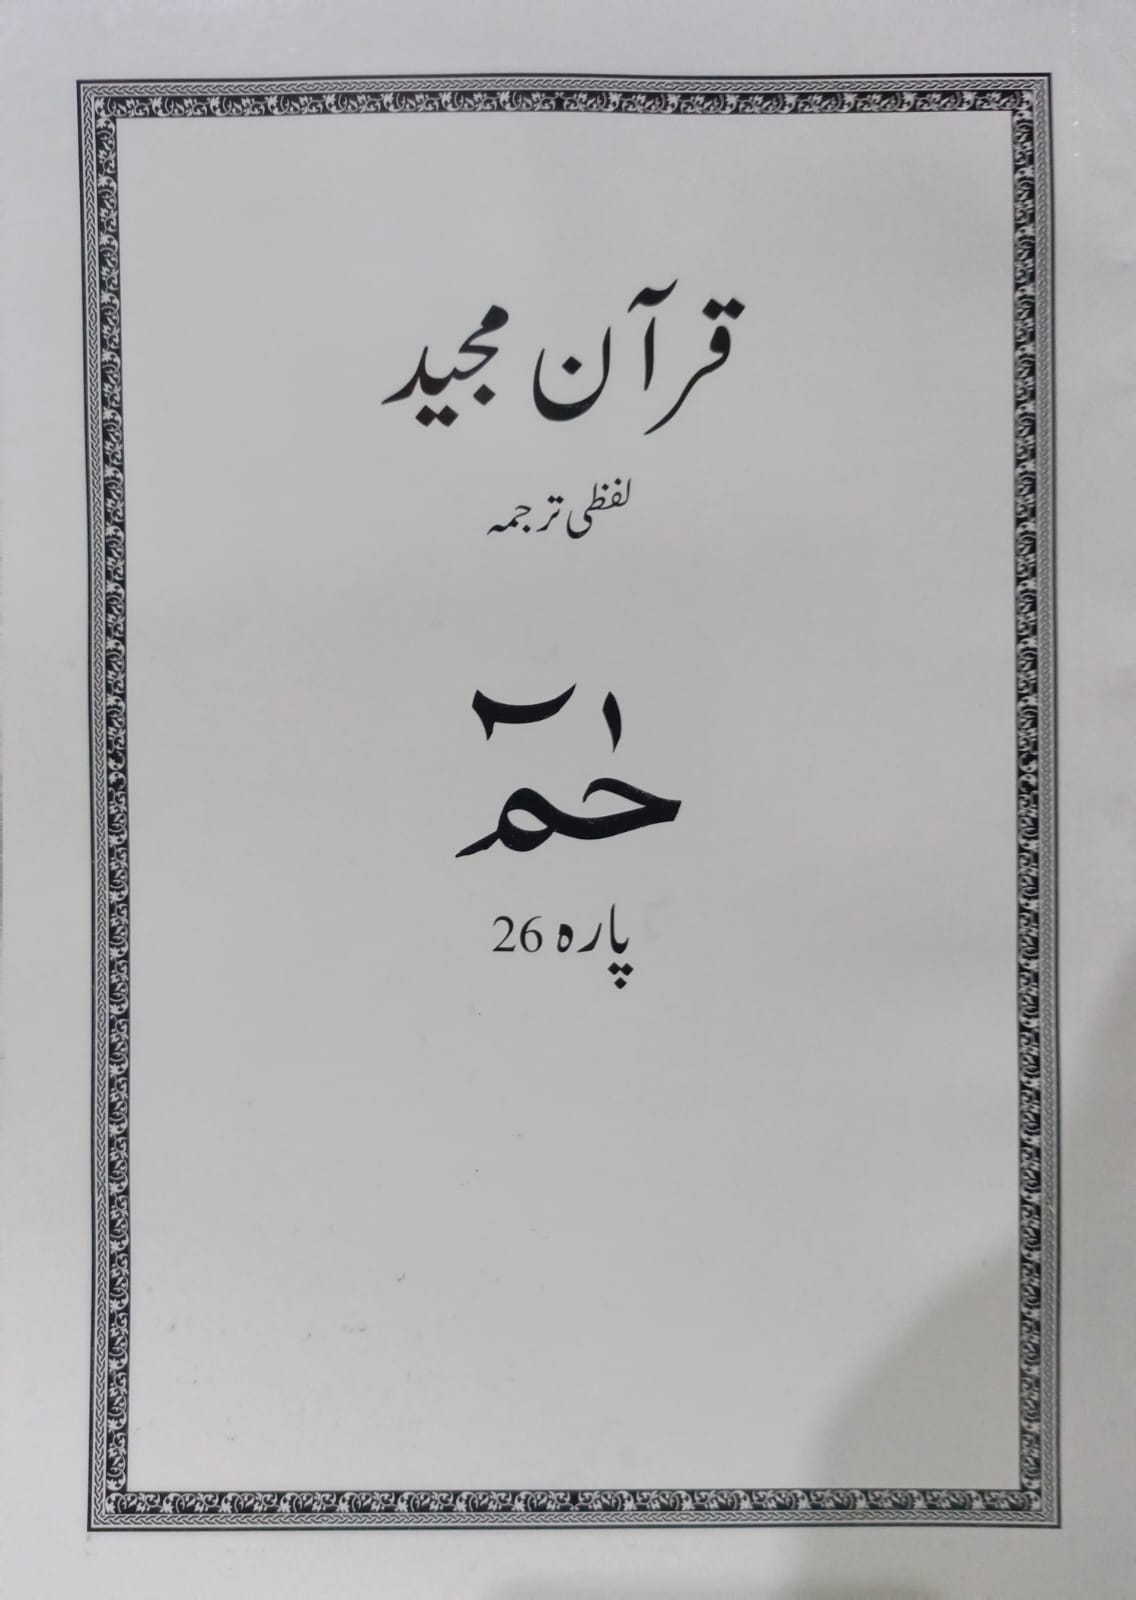 قرآن مجید
لفظی ترجمہ
حٰمٓ
پارہ 26